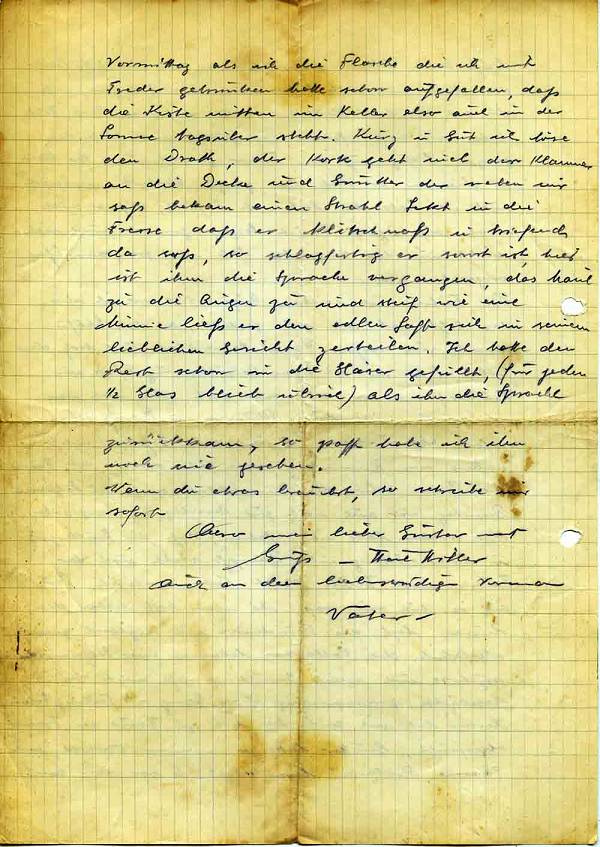 Vormittag als ich die Flasche die ich mit
Frieder getrunken hatte schon aufgefallen, daß
die Kiste mitten im Keller also auch in der
Sonne tagsüber steht. Kurz u Gut ich löse
den Drath, der Kork geht mich der Klammer
an die Decke und der neben mir
saß bekam einen Strahl Sekt in die
Fresse daß er klitschnaß u triefend
da saß, so schlagfertig er sonst ist, hier
ist ihm die Sprache vergangen, das Maul
zu die Augen zu und steif wie eine
Mumie ließ er den edlen Saft sich in seinem
lieblichen Gesicht zerteilen. Ich hatte den
Rest schon in die Gläser gefüllt, (für jeden
½ Glas blieb übrig) als ihm die Sprache
zurückkam, so paff habe ich ihn
noch nie gesehen.
Wenn du etwas brauchst, so schreibe mir
sofort
Also mein lieber Günter mit
Gruß – Heil Hitler
Auch an den liebenswürdigen
Vater –